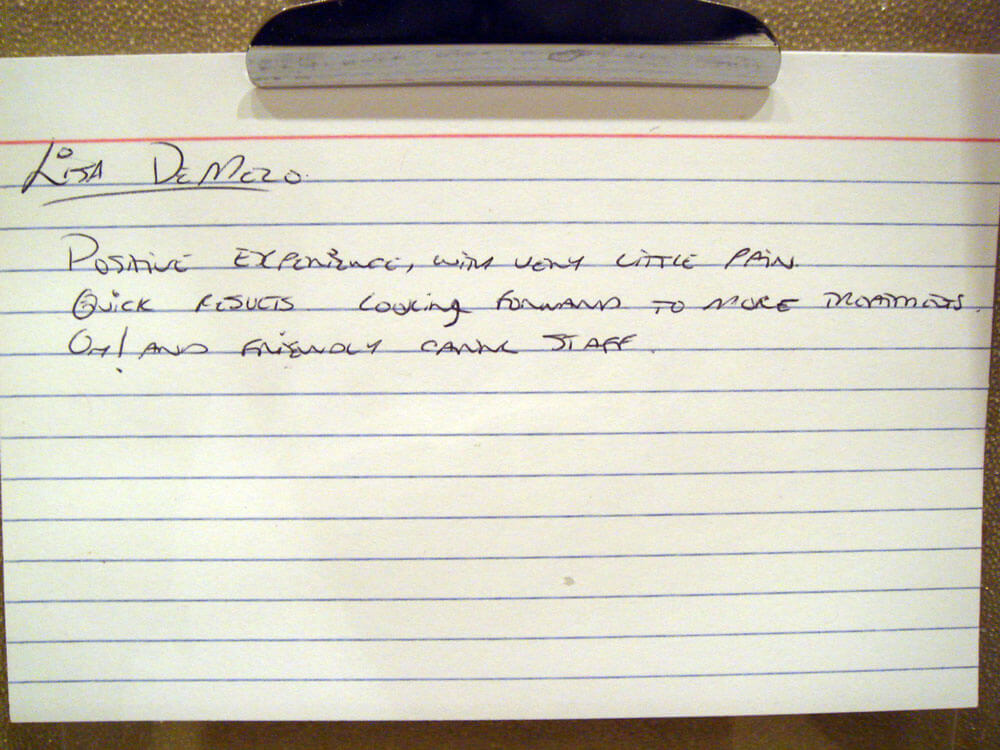 Lisa DeMezo
Positive experience, with very little pain.
Quick results. Looking forward to more treatments.
Oh! and friendly caring staff.